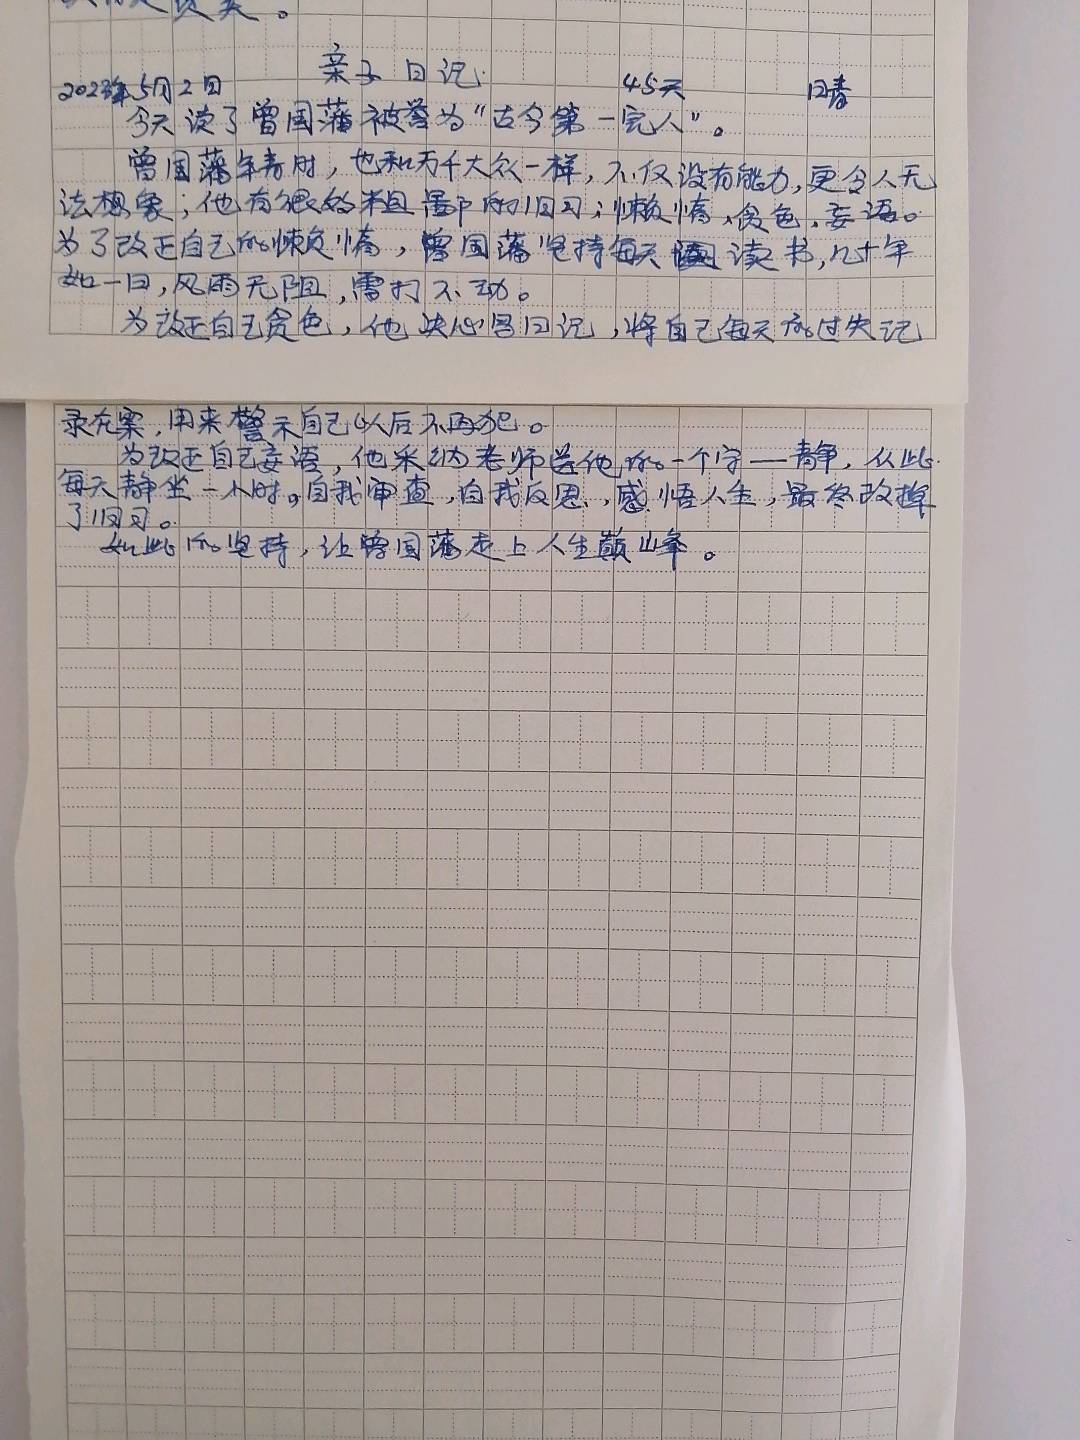 亲子日记
2023年5月2日 45天 日青
今天读了曾国藩被誉为“古今第一完人”。
曾国藩年青时，也和万千大众一样，不仅没有能力，更令人无
法想象；他有很的粗鄙的旧习；懒惰、贪色、妄语。
为了改正自己的懒惰，曾国藩坚持每天读书，几十年
如一日，风雨无阻，雷打不动。
为改正自己贪色，他决心写日记，将自己每天的过失记
录在案，用来警示自己以后不再犯。
为改正自己妄语，他采纳老师送他的一个字——静，从此
每天静坐一小时。自我审查，自我反思，感悟人生，最终改掉
了旧习。
如此的坚持，让曾国藩走上人生巅峰。